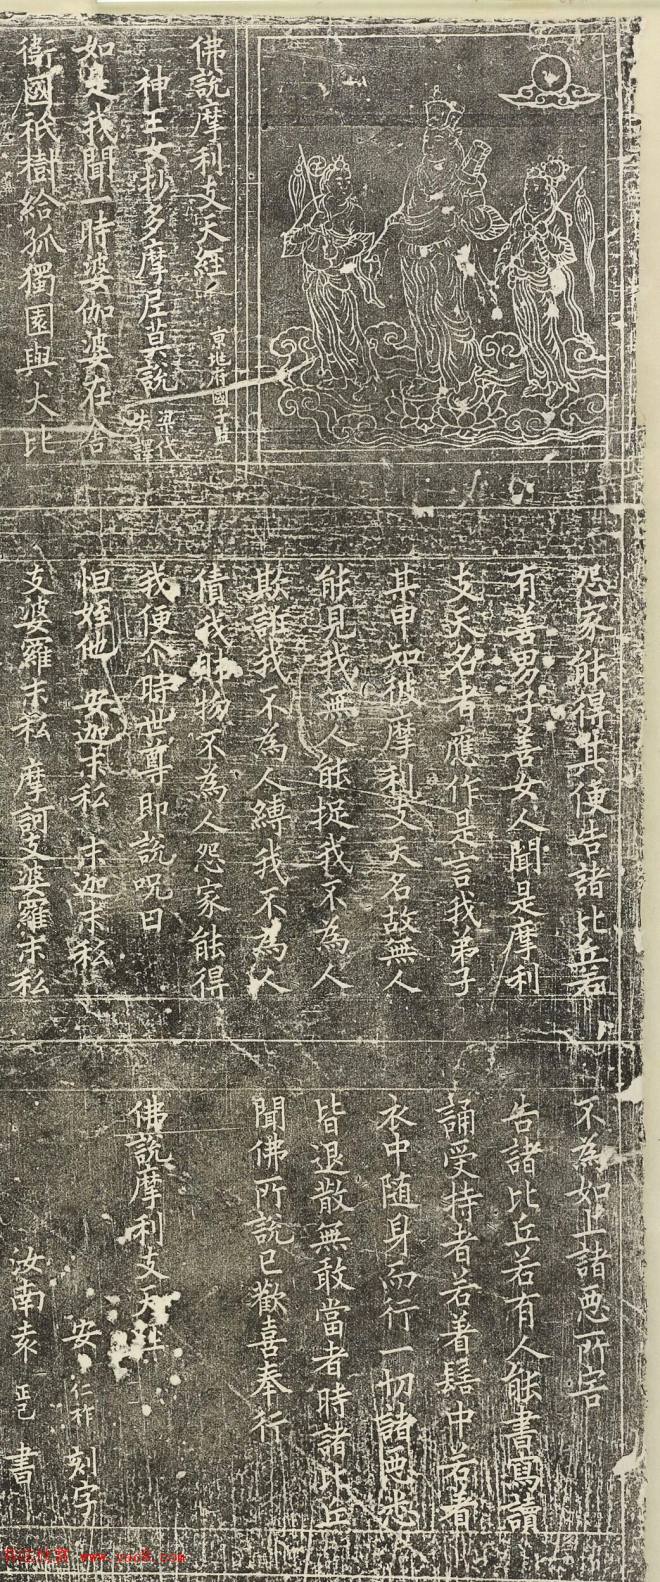 佛說摩利支天經
京兆府國子監
神王女抄多摩尼莫說
梁代失譯
如是我聞一時婆伽婆在舍
衛國祇樹給孤獨園與大比
怨家能得其便告諸比丘若
有善男子善女人聞是摩利
支天名者應作是言我弟子
其甲知彼摩利支天名故無人
能見我無人能捉我不為人
欺誑我不為人縛我不為人
債我財物不為人怨家能得
我便尒時世尊即說呪曰
怛姪他 安迦末私 末迦末私
支婆羅末私 摩訶支婆羅末私
不為如上諸惡所害
告諸比丘若有人能書寫讀
誦受持者若著髻中若著
衣中随身而行一切諸惡悉
皆退散無敢當者時諸比丘
聞佛所說已歡喜奉行
佛說摩利支天經
安仁祚 刻字
汝南袁正己 書
www.yac8.com